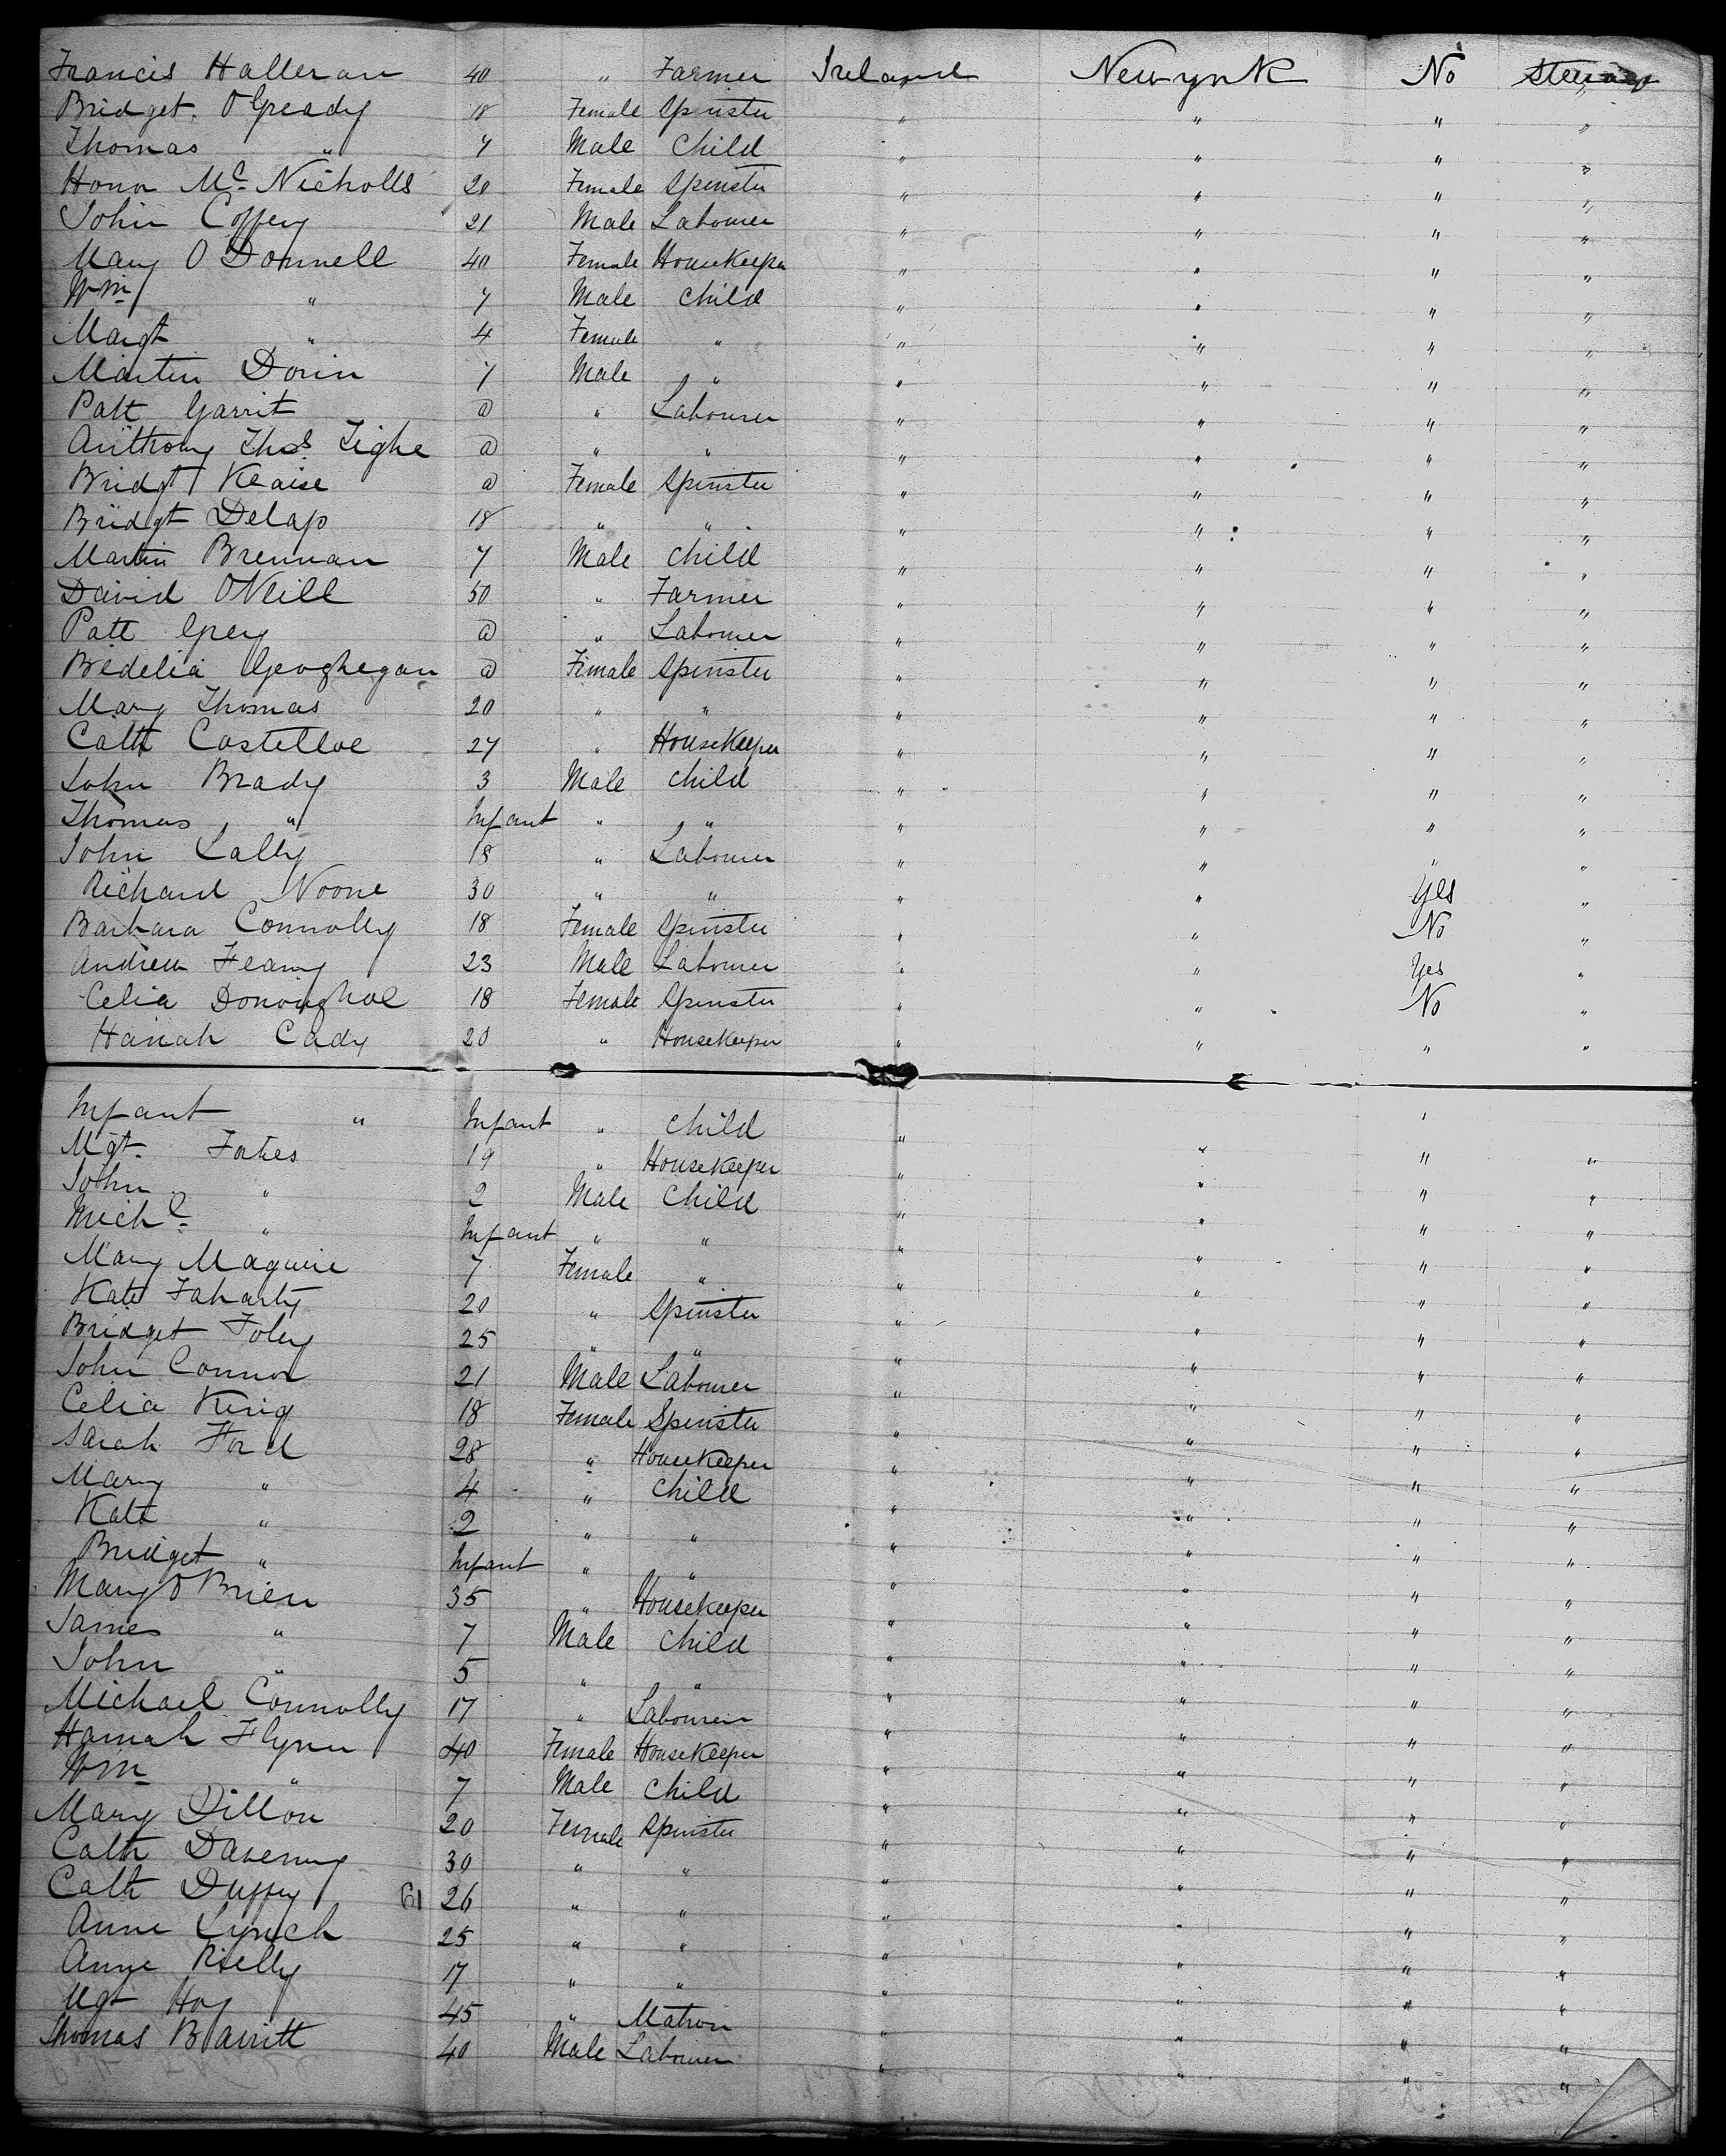 Francis Halleran 40 " Farmer Ireland New york No Steerage
Bridget O Gready 18 Female Spinster " " " "
Thomas " 7 Male Child " " " "
Honor Mc Nicholls 20 Female Spinster " " " "
John Coffey 21 Male Labourer " " " "
Mary O Donnell 40 Female Housekeeper " " " "
Wm " 7 Male Child " " " "
Margt " 4 Female " " " " "
Martin Dorin 7 Male " " " " "
Patt Garrit @ " Labourer " " " "
Anthony Thos Tighe @ " " " " " "
Bridgt Keaise @ Female Spinster " " " "
Bridgt Delap 18 " " " " " "
Martin Brennan 7 Male Child " " " "
David ONeill 50 " Farmer " " " "
Patt Grey @ " Labourer " " " "
Bedelia Geoghegan @ Female Spinster " " " "
Mary Thomas 20 " " " " " "
Cath Costelloe 27 " Housekeeper " " " "
John Brady 3 Male Child " " " "
Thomas " Infant " " " " " "
John Lally 18 " Labourer " " " "
Richard Noone 30 " " " " Yes "
Barbara Connolly 18 Female Spinster " " No "
Andrew Feany 23 Male Labourer " " Yes "
Celia Donoinghoe 18 Female Spinster " " No "
Hanah Cady 20 " Housekeeper " " " "
Infant " Infant " Child " " " "
Mgt. Fahes 19 " Housekeeper " " " "
John " 2 Male Child " " " "
Michl " Infant " " " " " "
Mary Maguire 7 Female " " " " "
Kate Faharty 20 " Spinster " " " "
Bridget Foley 25 " " " " " "
John Connor 21 Male Labourer " " " "
Celia King 18 Female Spinster " " " "
Sarah Ford 28 " Housekeeper " " " "
Mary " 4 " Child " " " "
Kate " 2 " " " " " "
Bridget " Infant " " " " " "
Mary O Brien 35 " Housekeeper " " " "
James " 7 Male Child " " " "
John " 5 " " " " " "
Michael Connolly 17 " Labourer " " " "
Hannah Flynn 40 Female Housekeeper " " " "
Wm " 7 Male Child " " " "
Mary Dillon 20 Female Spinster " " " "
Cath Daveney 30 " " " " " "
Cath Duffey 26 " " " " " "
Anne Lynch 25 " " " " " "
Anne Rielly 17 " " " " " "
Mgt Hoy 45 " Matron " " " "
Thomas Barritt 40 Male Labourer " " " "